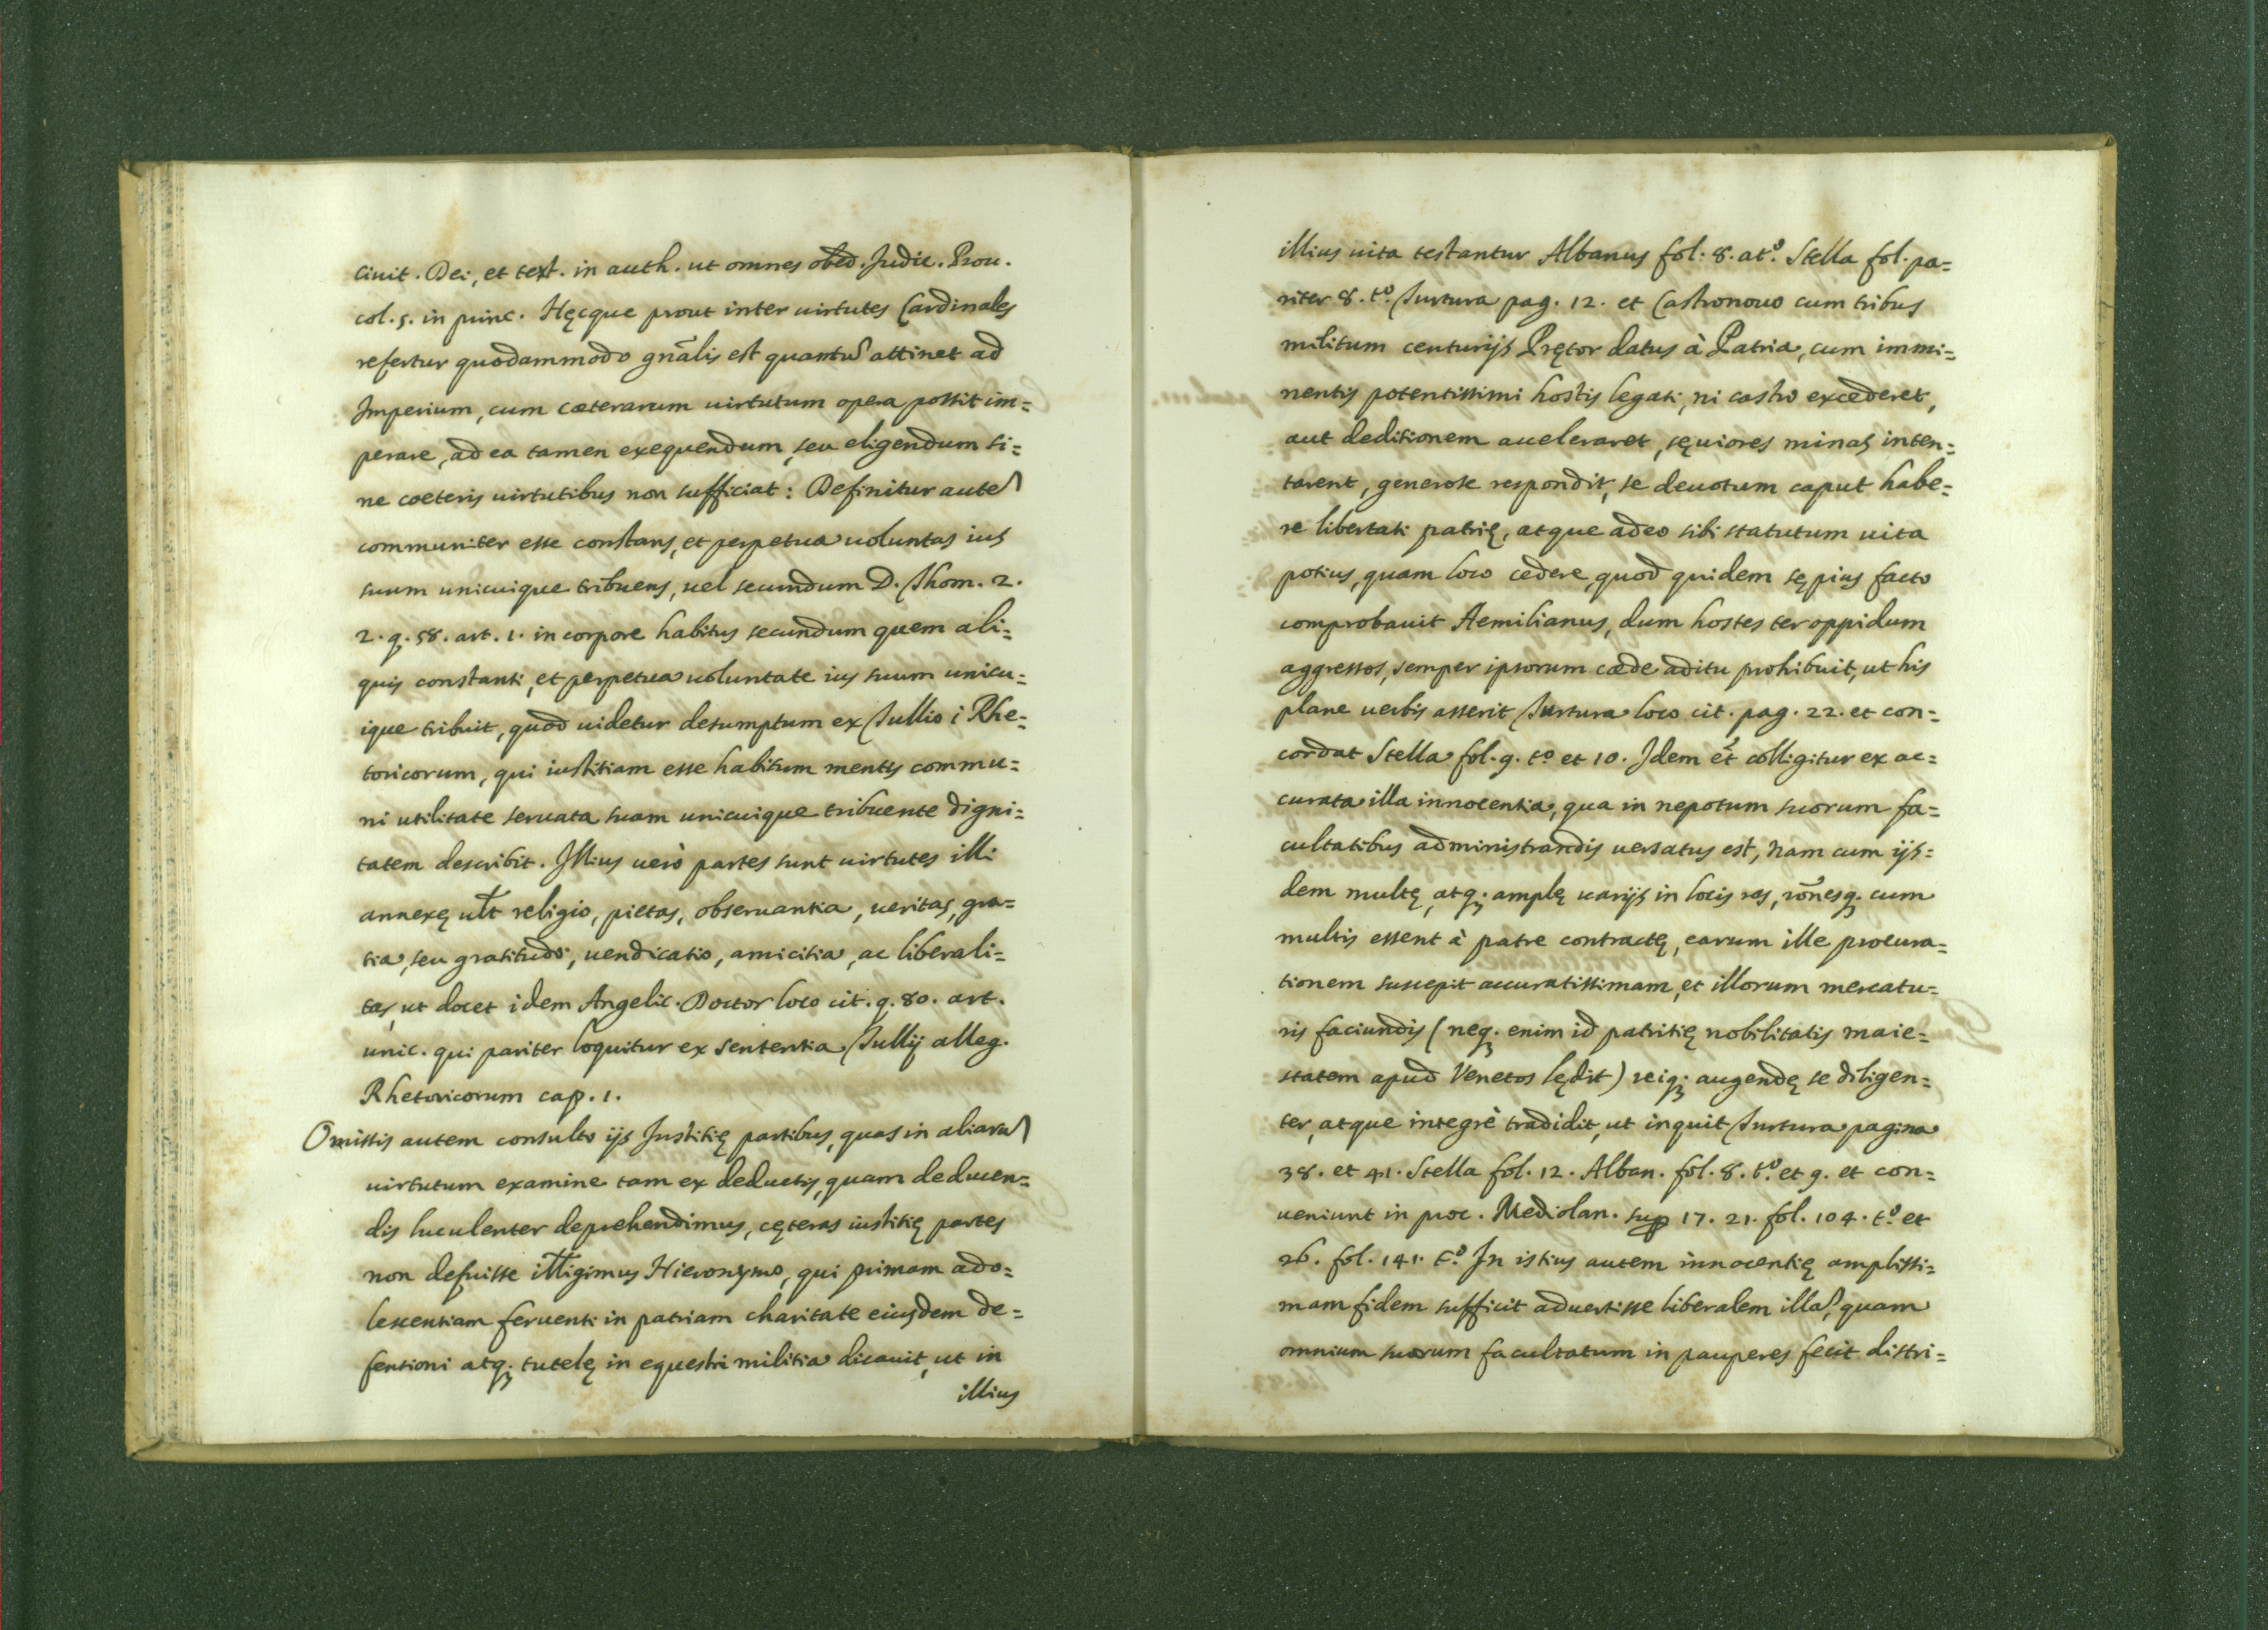 ciuit. Dei, et text. in auth. ut omnes obed. Judic. Prou.
col. 5. in princ. Hęcque prout inter uirtutes Cardinales
refertur quodammodo gnãlis est quantũ attinet ad
Imperium, cum cæterarum uirtutum opera possit im=
perare, ad ea tamen exequendum, seu eligendum si=
ne coeteris uirtutibus non sufficiat: Definitur autẽ
communiter esse constans, et perpetua uoluntas ius
suum unicuique tribuens, uel secundum D. Thom. 2.
2. q. 58. art. 1. in corpore habitus secundum quem ali=
quis constanti, et perpetua uoluntate ius suum unicu=
ique tribuit, quod uidetur desumptum ex Tullio i Rhe=
toricorum, qui iustitiam esse habitum mentis commu=
ni utilitate seruata suam unicuique tribuente digni=
tatem describit. Illius uerò partes sunt uirtutes illi
annexę ult religio, pietas, obseruantia, ueritas, gra=
tia, seu gratitudo, uendicatio, amicitia, ac liberali=
tas, ut docet idem Angelic. Doctor loco cit. q. 80. art.
unic. qui pariter loquitur ex sententia Tullij alleg.
Rhetoricorum cap. 1.
Omissis autem consulto ijs Iustitię partibus, quas in aliarũ
uirtutum examine tam ex deductis, quam deducen=
dis luculenter deprehendimus, cęteras iustitię partes
non defuisse itlligimus Hieronymo, qui primam ado=
lescentiam feruenti in patriam charitate eiusdem de=
fensioni atq; tutelę in equestri militia dicauit, ut in
illius
illius uita testantur Albanus fol. 8. at.º Stella fol. pa=
riter 8. t.º Turtura pag. 12. et Castronouo cum tribus
militum centurijs Prętor datus à Patria, cum immi=
nentis potentissimi hostis legati, ni castro excederet,
aut deditionem acceleraret, sęuiores minas inten=
tarent, generose respondit, se deuotum caput habe=
re libertati patrię, atque adeo sibi statutum uita
potius, quam loco cedere, quod quidem sępius facto
comprobauit Aemilianus, dum hostes ter oppidum
aggressos, semper ipsorum cæde aditu prohibuit, ut his
plane uerbis asserit Turtura loco cit. pag. 22. et con=
cordat Stella fol. 9. t.º et 10. Idem ét colligitur ex ac=
curata illa innocentia, qua in nepotum suorum fa=
cultatibus administrandis uersatus est, nam cum ijs=
dem multę, atq; amplę uarijs in locis res, rõnesq; cum
multis essent à patre contractę, earum ille procura=
tionem suscepit accuratissimam, et illorum mercatu=
ris faciundis (neq; enim id patritię nobilitatis maie=
statem apud Venetos lędit) reiq; augendę se diligen=
ter, atque integrè tradidit, ut inquit Turtura pagina
38. et 41. Stella fol. 12. Alban. fol. 8. t.º et 9. et con=
ueniunt in proc. Mediolan. sup 17. 21. fol. 104. t.º et
26. fol. 141. t.º In istius autem innocentię amplissi=
mam fidem sufficit aduertisse liberalem illã, quam
omnium suorum facultatum in pauperes fecit distri=